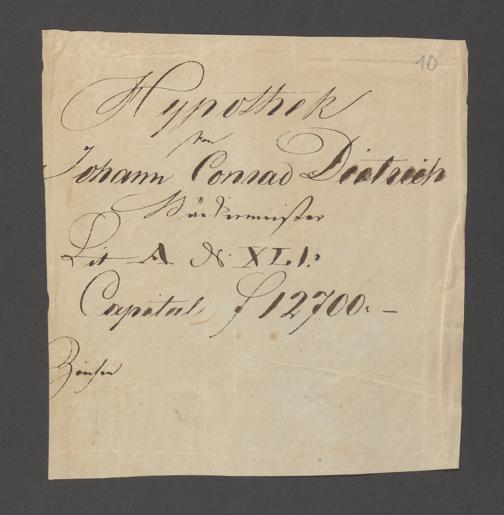 10
Hypothek
von
Johann Conrad Dietrich
Bäckermeister
Lit A No XLI.
Capital f 12700. –
Zinsen